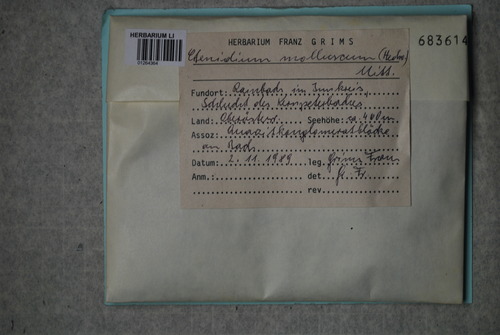 HERBARIUM LI
HERBARIUM FRANZ GRIMS
683614
Ctenidium molluscum (Hedw.)
Mitt.
Fundort: Rambach im Innkreis,
Schlucht des
Land: Oberösterr. Seehöhe: ca. 400 m
Assoz: Quarzitkonglomeratblöcke
am Bach
Datum: 2. 11. 1989 leg. Grims Franz
Anm.: det. Gr. Fr.
rev.